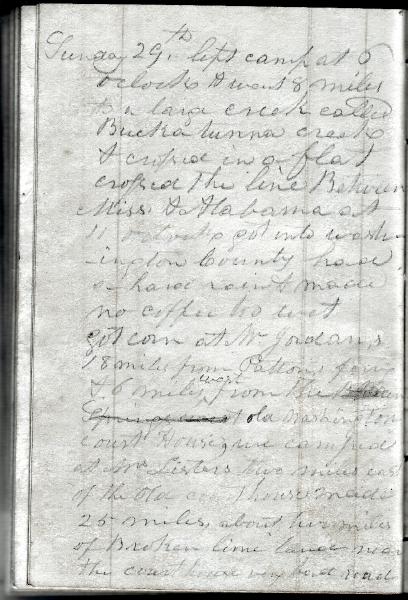 Sunday 29th left camp at 6
oclock & went 8 miles
to a larg creek called
Buckatunna creek
& crosed in a flat
crosed the line Between
Miss & Alabama at
11 oclock got into wash-
-ington County had
a hard rain & made
no coffee too wet
got corn at Mr Jordans
18 miles from Pattons ferry
& 6 miles west from the
Springs west old Washington
court House, we campted
at Mr Listers two miles east
of the old court house made
25 miles, about two miles
of Broken lime land near
the court house very bad road